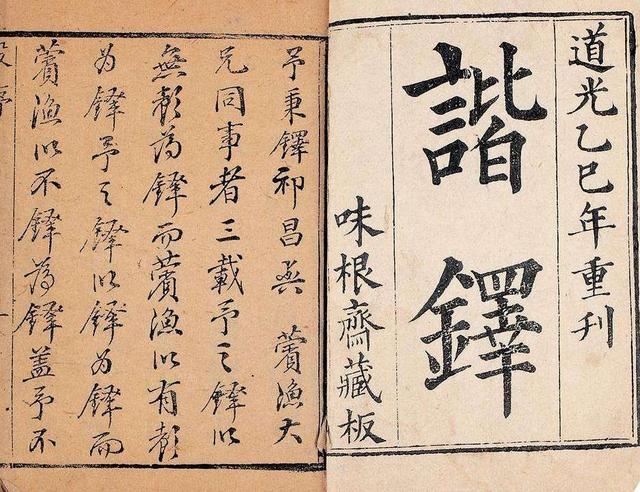 道光乙巳年重刊
諧鐸
味根齋藏板
予秉鐸祁昌與 薲漁大
兄同事者三載予之鐸以
無為鐸而薲漁以有
为鐸予之鐸以鐸为鐸而
薲漁以不鐸為鐸蓋予不